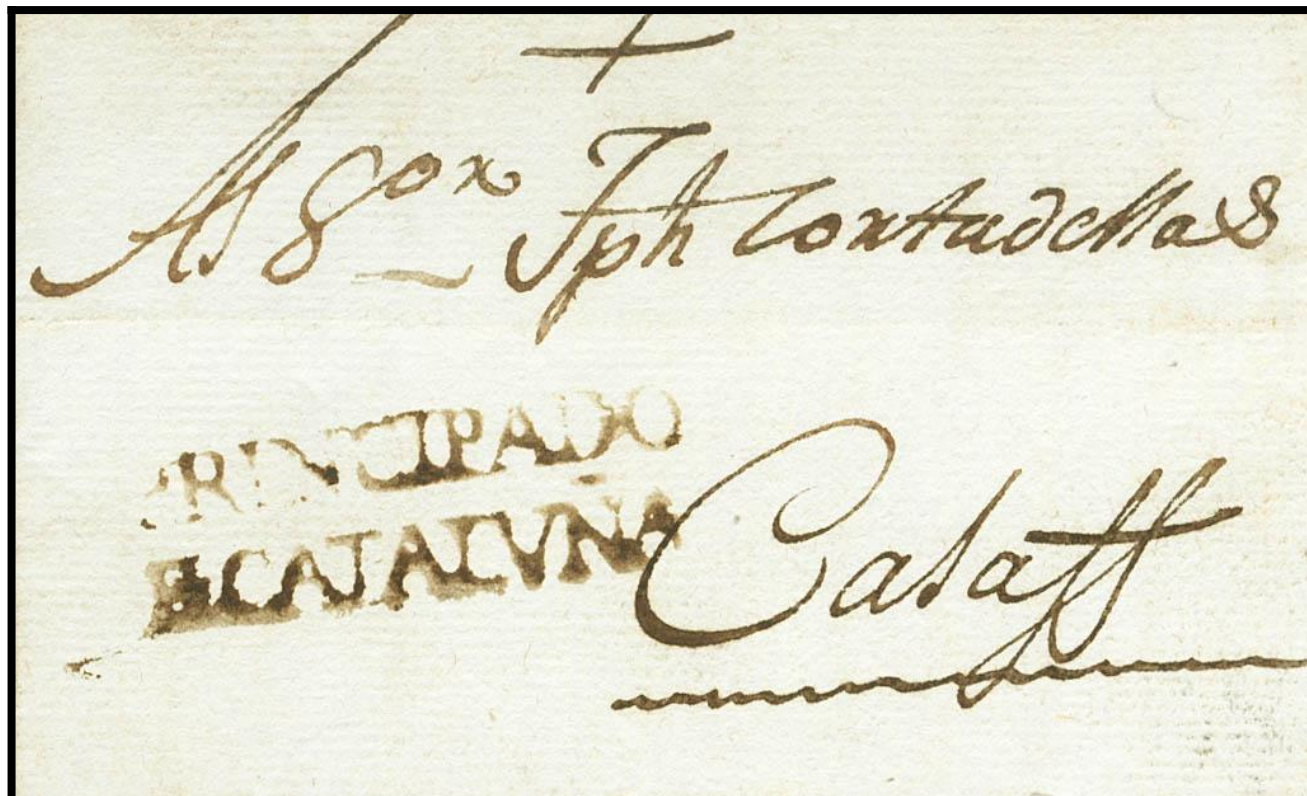 Al Sor Jph Cortadellas
PRINCIPADO
E CATALUÑA
Calaff